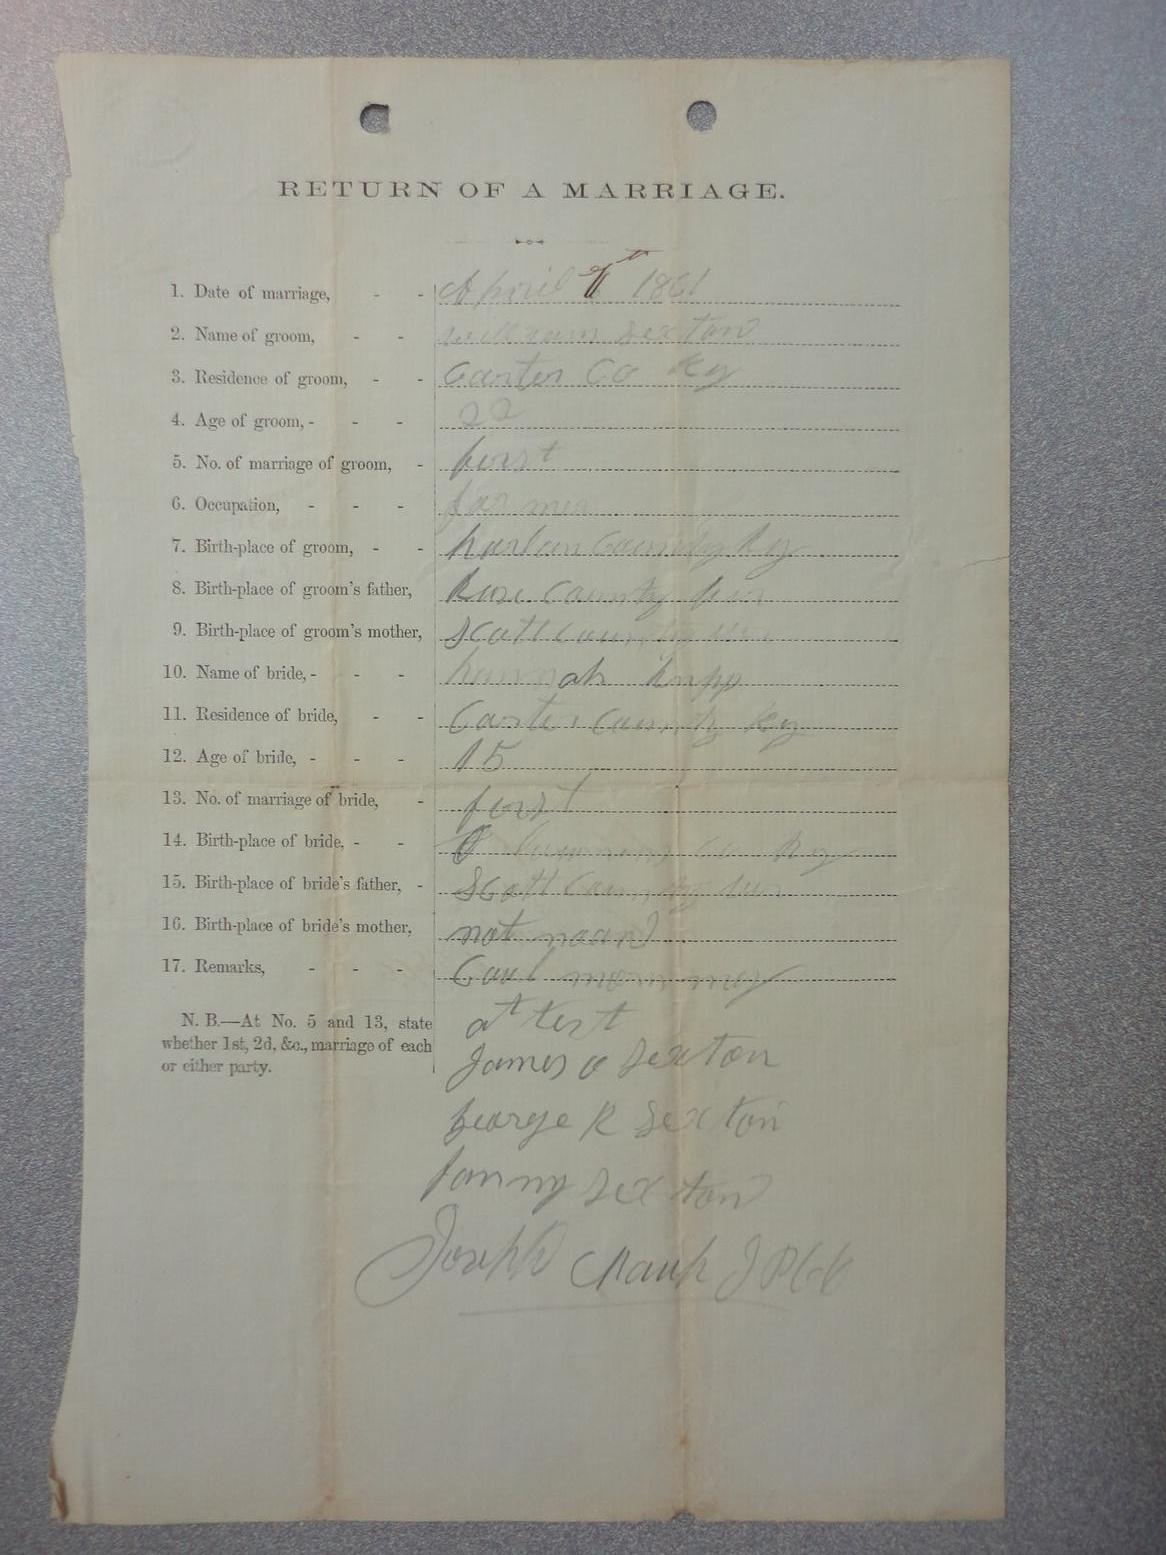 RETURN OF A MARRIAGE.
1. Date of marriage, - - April 1861
2. Name of groom, - - William Sexton
3. Residence of groom, - - Carter Co Ky
4. Age of groom, - - - 22
5. No. of marriage of groom, - first
6. Occupation, - - - farmer
7. Birth-place of groom, - - harlan County Ky
8. Birth-place of groom's father, County
9. Birth-place of groom's mother, Scott County
10. Name of bride, - - - hannah
11. Residence of bride, - - Carter County Ky
12. Age of bride, - - - 15
13. No. of marriage of bride, - first
14. Birth-place of bride, - - Co Ky
15. Birth-place of bride's father, - Scott County
16. Birth-place of bride's mother, not
17. Remarks, - - -
N. B.—At No. 5 and 13, state
whether 1st, 2d, &c., marriage of each
or either party.
at test
James Sexton
George R Sexton
fanny Sexton
Joseph J P